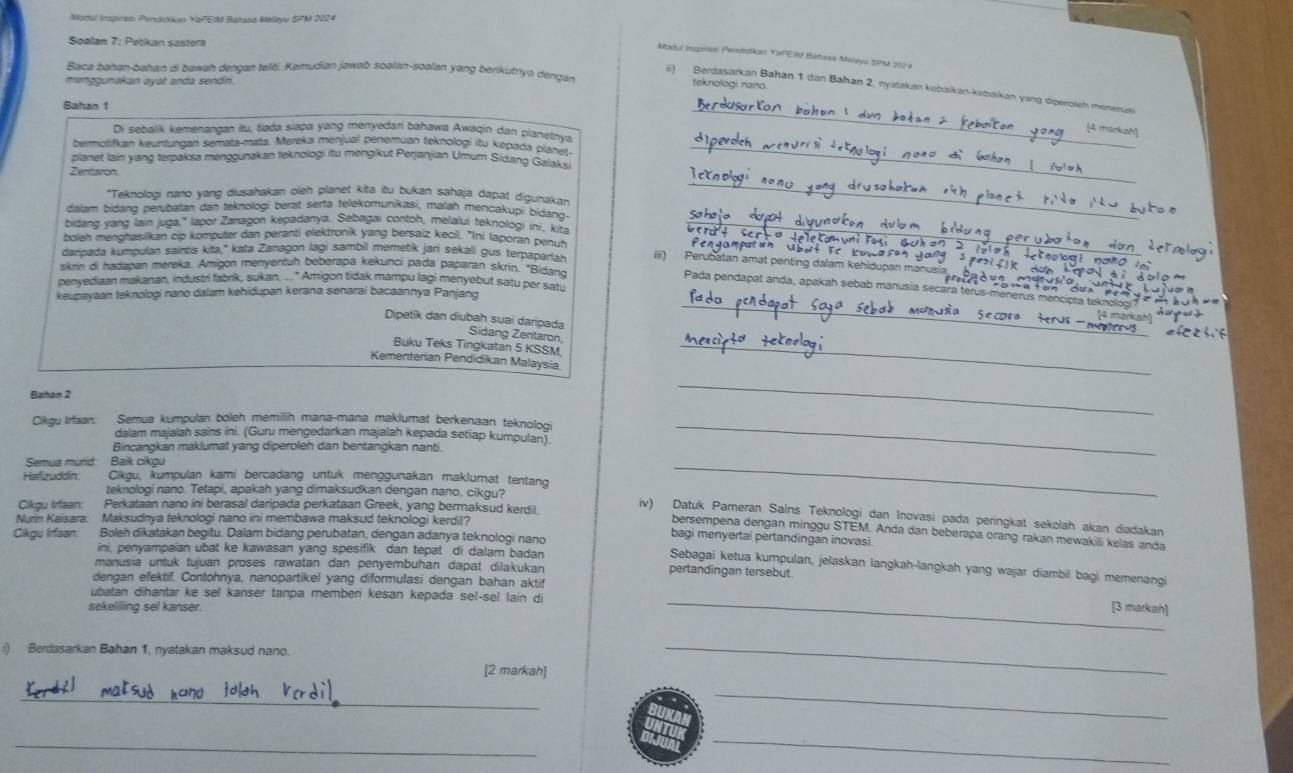 Modul Inspirasi Pendidikan YaPEIM Bahasa Melayu SPM 2024
Soalan 7: Petikan sastera
Baca bahan-bahan di bawah dengan teliti. Kemudian jawab soalan-soalan yang berikutnya dengan
menggunakan ayat anda sendiri.
Bahan 1
Di sebalik kemenangan itu, tiada siapa yang menyedari bahawa Awaqin dan planetnya
bermotifkan keuntungan semata-mata. Mereka menjual penemuan teknologi itu kepada planet-
planet lain yang terpaksa menggunakan teknologi itu mengikut Perjanjian Umum Sidang Galaksi
Zentaron.
"Teknologi nano yang diusahakan oleh planet kita itu bukan sahaja dapat digunakan
dalam bidang perubatan dan teknologi berat serta telekomunikasi, malah mencakupi bidang-
bidang yang lain juga," lapor Zanagon kepadanya. Sebagai contoh, melalui teknologi ini, kita
boleh menghasilkan cip komputer dan peranti elektronik yang bersaiz kecil. "Ini laporan penuh
daripada kumpulan saintis kita," kata Zanagon lagi sambil memetik jari sekali gus terpaparlah
skrin di hadapan mereka. Amigon menyentuh beberapa kekunci pada paparan skrin. "Bidang
penyediaan makanan, industri fabrik, sukan, ..." Amigon tidak mampu lagi menyebut satu per satu
keupayaan teknologi nano dalam kehidupan kerana senarai bacaannya Panjang
Dipetik dan diubah suai daripada
Sidang Zentaron,
Buku Teks Tingkatan 5 KSSM,
Kementerian Pendidikan Malaysia.
Bahan 2
Cikgu Irfaan: Semua kumpulan boleh memilih mana-mana maklumat berkenaan teknologi
dalam majalah sains ini. (Guru mengedarkan majalah kepada setiap kumpulan).
Bincangkan maklumat yang diperoleh dan bentangkan nanti.
Semua murid: Baik cikgu
Hafizuddin: Cikgu, kumpulan kami bercadang untuk menggunakan maklumat tentang
teknologi nano. Tetapi, apakah yang dimaksudkan dengan nano, cikgu?
Cikgu Irfaan: Perkataan nano ini berasal daripada perkataan Greek, yang bermaksud kerdil.
Nurin Kaisara: Maksudnya teknologi nano ini membawa maksud teknologi kerdil?
Cikgu Irfaan: Boleh dikatakan begitu. Dalam bidang perubatan, dengan adanya teknologi nano
ini, penyampaian ubat ke kawasan yang spesifik dan tepat di dalam badan
manusia untuk tujuan proses rawatan dan penyembuhan dapat dilakukan
dengan efektif. Contohnya, nanopartikel yang diformulasi dengan bahan aktif
ubatan dihantar ke sel kanser tanpa memberi kesan kepada sel-sel lain di
sekeliling sel kanser.
i) Berdasarkan Bahan 1, nyatakan maksud nano.
[2 markah]
maksud nano ialah kerdil
Modul Inspirasi Pendidikan YaPEIM Bahasa Melayu SPM 2024
ii) Berdasarkan Bahan 1 dan Bahan 2, nyatakan kebaikan-kebaikan yang diperoleh menerusi
teknologi nano.
[4 markah]
Berdasarkan bahan 1 dan bahan 2 kebaikan yong
diperoleh menerusi teknologi nano di bahan 1 ialah
Teknologi nano yang diusahakan oleh planet kita itu bukan
sahaja dapat digunakan dalam bidang perubatan dan teknologi
berat serta telekomunikasi bahan 2 ialah teknologi nano ini
Pengampaian ubat ke kawasan yang spesifik dan kepat di dalam
badan manusia untuk tujuan
proses rawatan dan penyembuhan
dapat
efektif
iii) Perubatan amat penting dalam kehidupan manusia.
Pada pendapat anda, apakah sebab manusia secara terus-menerus mencipta teknologi?
[4 markah]
Pada pendapat saya sebab manusia secara terus-menerus
mencipta teknologi
iv) Datuk Pameran Sains Teknologi dan Inovasi pada peringkat sekolah akan diadakan
bersempena dengan minggu STEM. Anda dan beberapa orang rakan mewakili kelas anda
bagi menyertai pertandingan inovasi.
Sebagai ketua kumpulan, jelaskan langkah-langkah yang wajar diambil bagi memenangi
pertandingan tersebut.
[3 markah]
BUKAN
UNTUK
DIJUAL